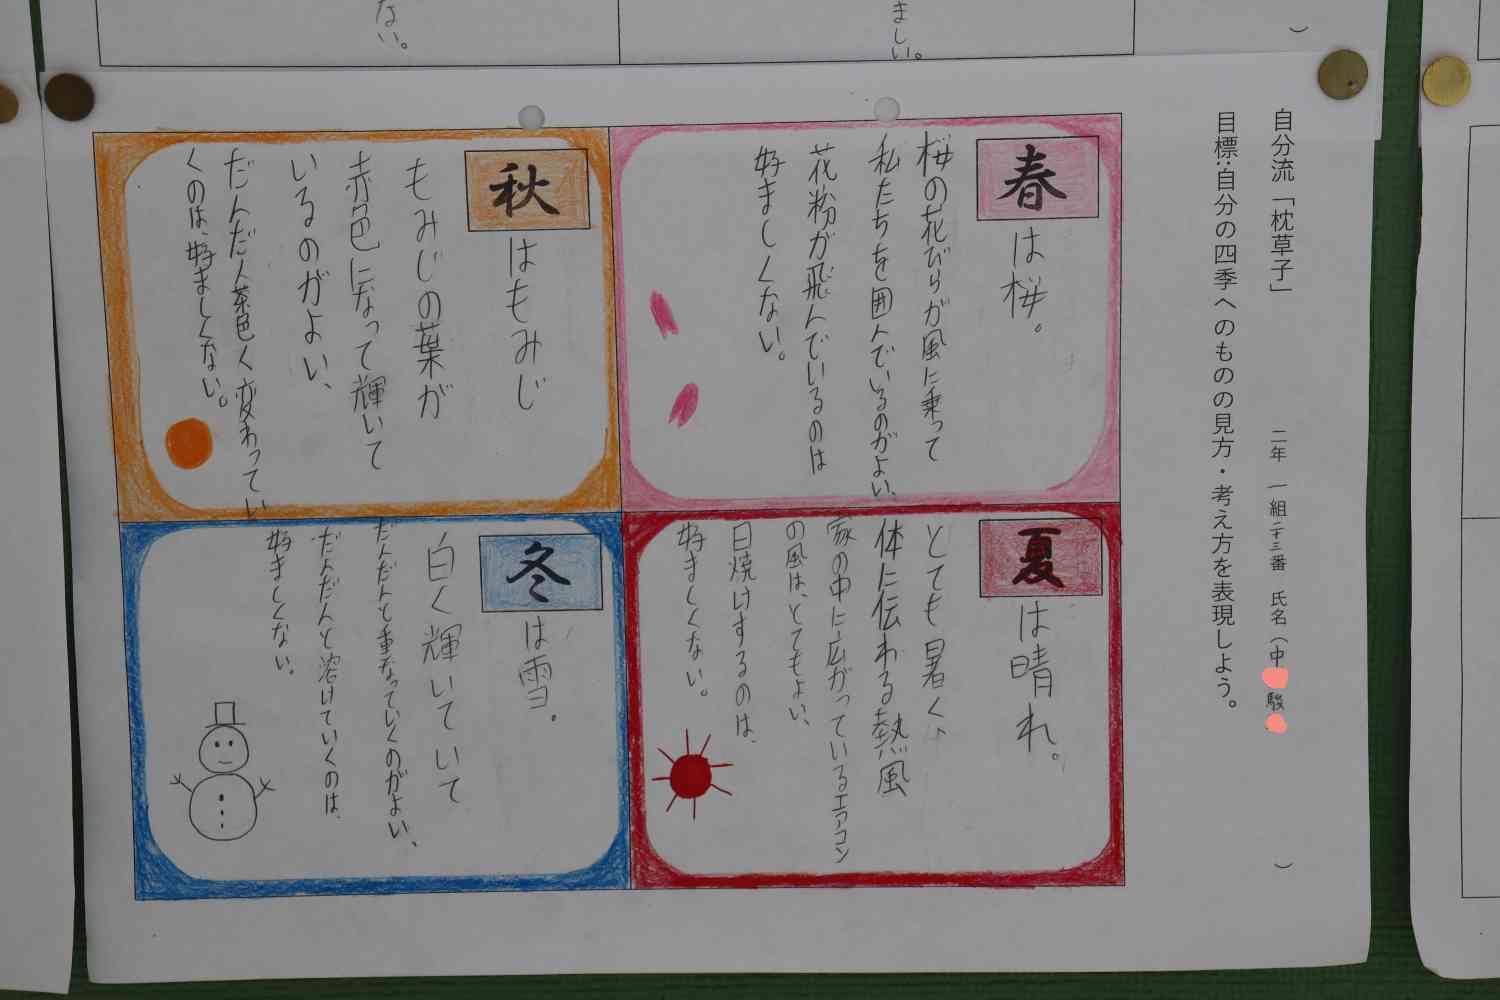 自分流「枕草子」
二年 一組 二十三番 氏名(中 駿 )
目標:自分の四季へのものの見方・考え方を表現しよう。
春は桜。
桜の花びらが風に乗って
私たちを囲んでいるのがよい、
花粉が飛んでいるのは
好ましくない。
夏は晴れ。
とても暑く、
体に伝わる熱風
家の中に広がっているエアコン
の風は、とてもよい、
日焼けするのは、
好ましくない。
秋はもみじ
もみじの葉が
赤色になって輝いて
いるのがよい、
だんだん茶色く変わってい
くのは、好ましくない。
冬は雪。
白く輝いていて
だんだんと重なっていくのがよい、
だんだんと溶けていくのは、
好ましくない。
ましい。
ない。